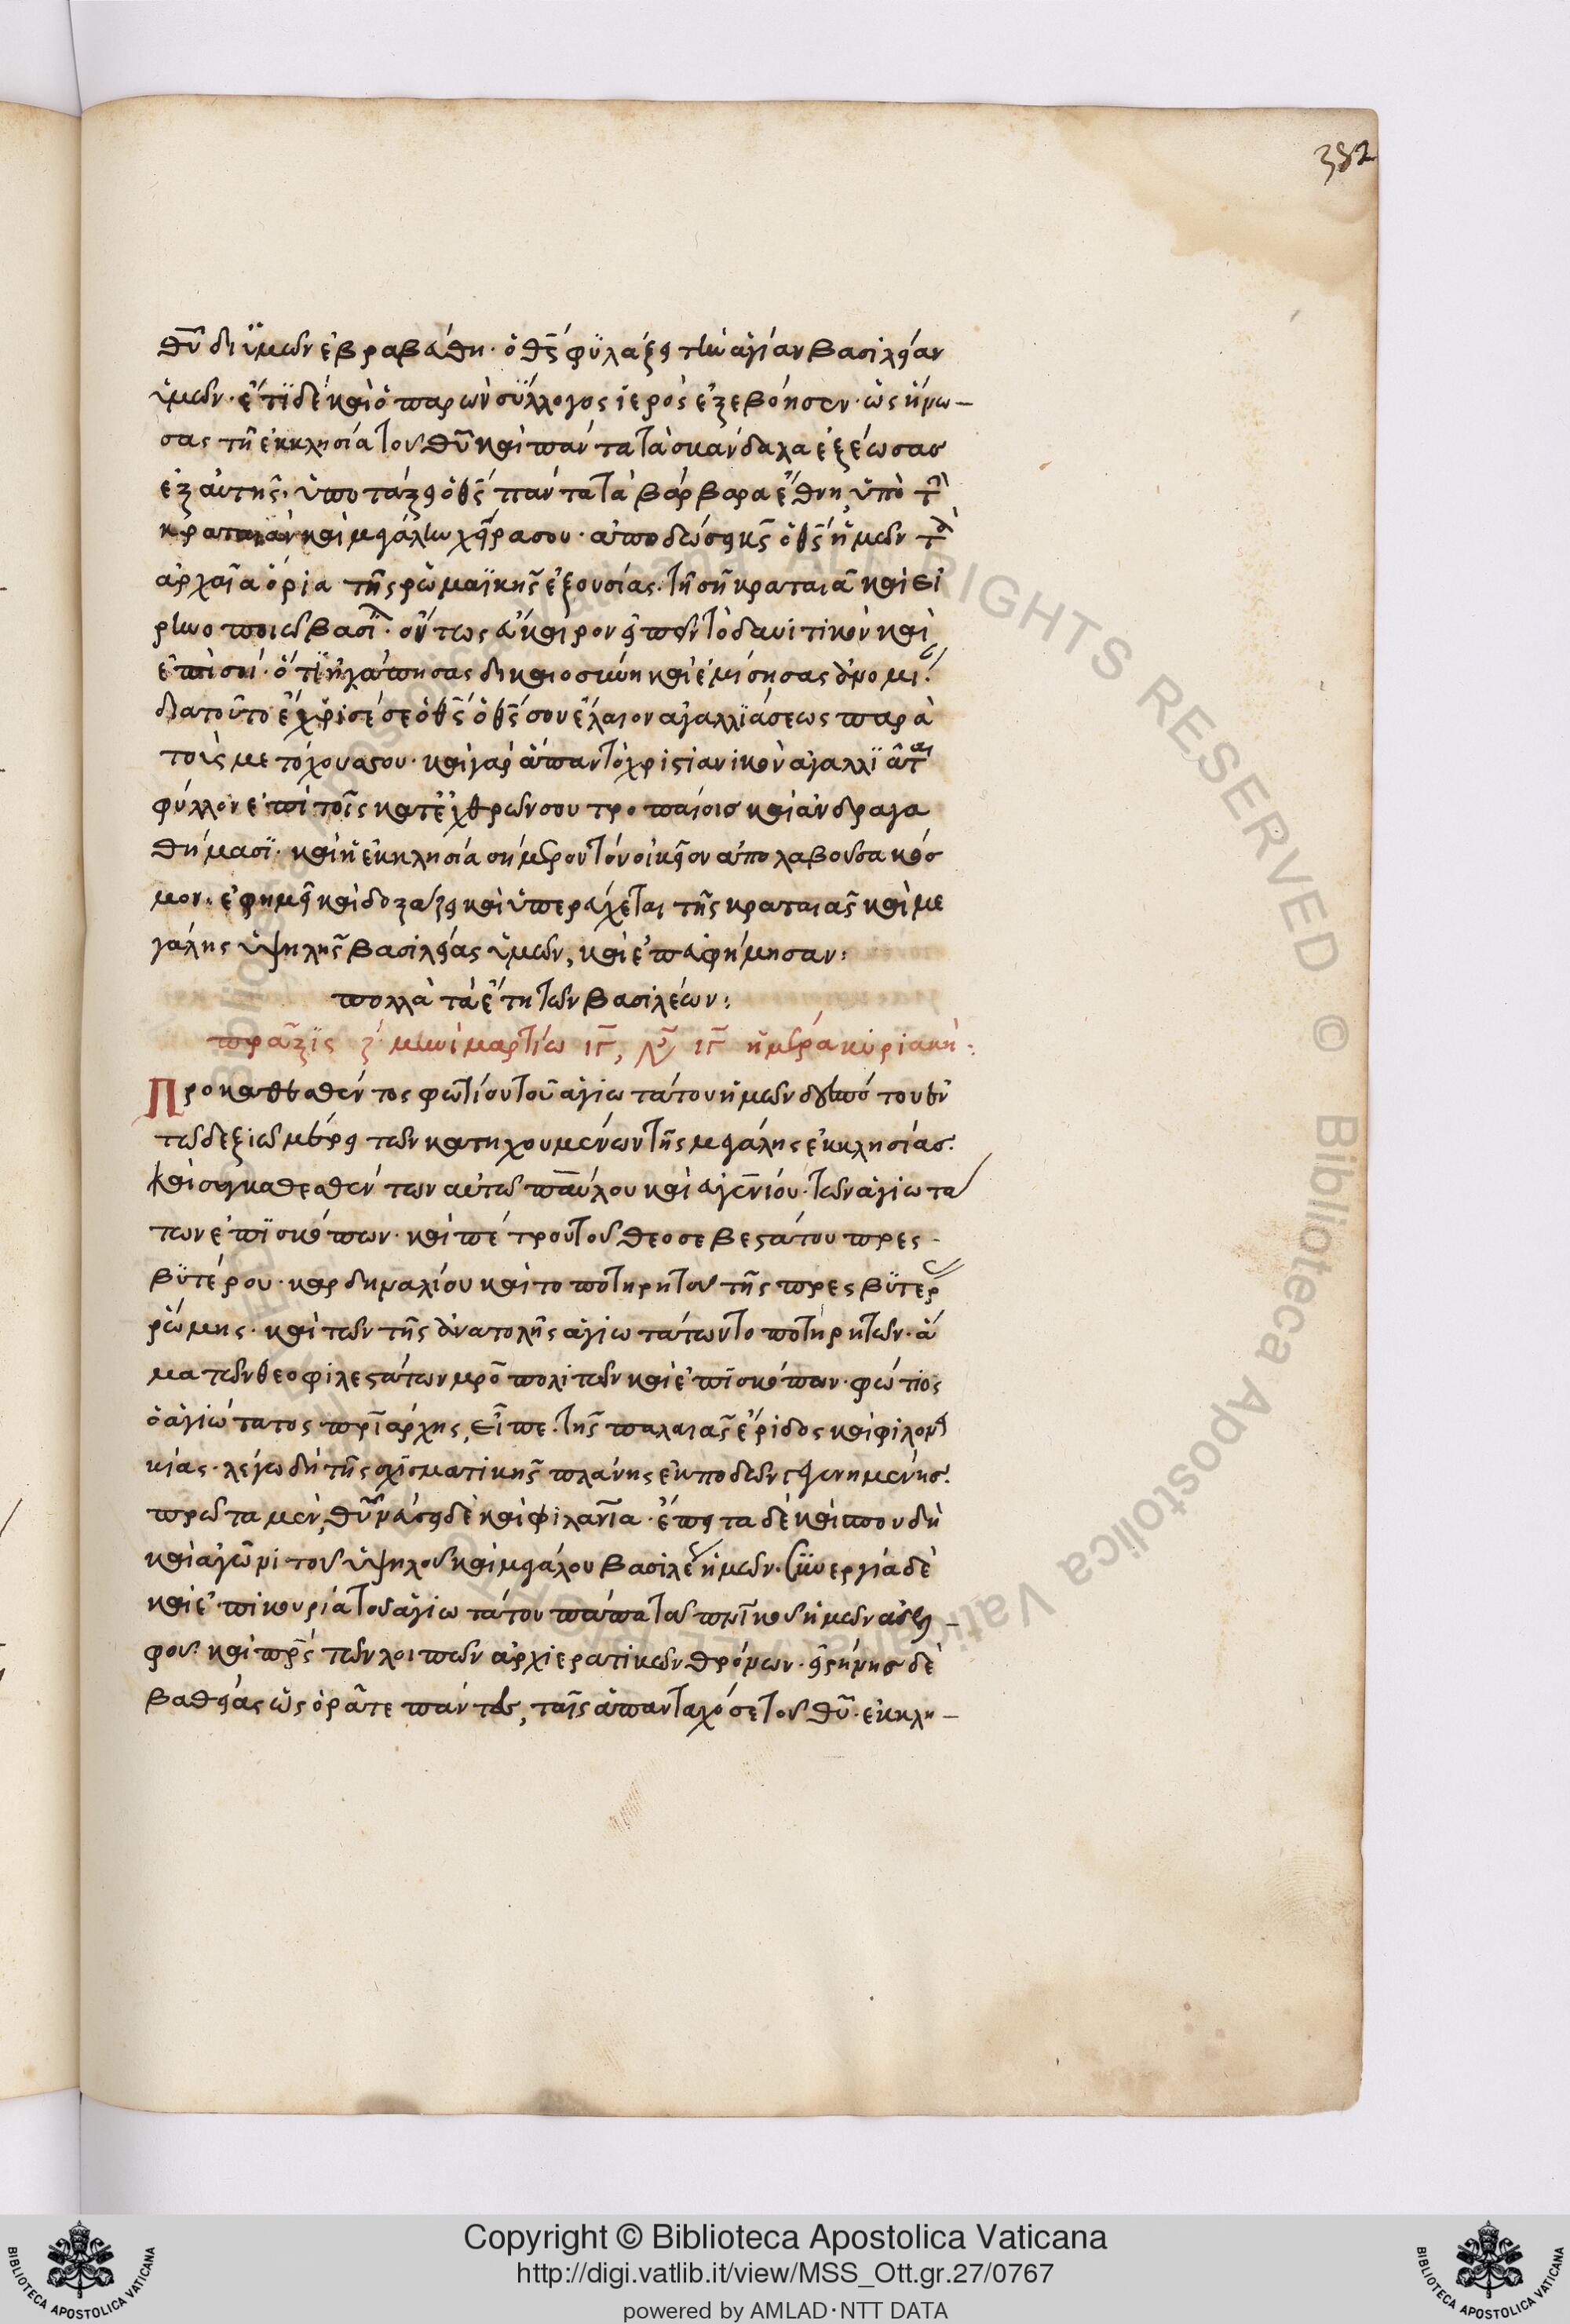 382
θῡ δι ὑμῶν ἐβραβεύθη· ὁ θς̄ φυλάξει τὴν ἁγίαν βασιλείαν
ὑμῶν· ἔτι δὲ καὶ ὁ παρὼν σύλλογος ἱερὸς ἐξεβόησεν· ὡς ἥνω-
σας τῆ ἐκκλησία τοῦ θῡ καὶ πάντα τὰ σκάνδαλα ἐξέωσας
ἐξ αὐτῆς· ὑποτάξει ὁ θς̄ πάντα τὰ βάρβαρα ἔθνη, ὑπὸ τὴν
κραταιὰν καὶ μεγάλην χεῖρα σου· ἀποδώσει κς̄ ὁ θς̄ ἡμῶν τὰ
ἀρχαῖα ὅρια τῆς ρωμαϊκῆς ἐξουσίας· τῆ σῆ κραταιᾶ καὶ εἰ
ρηνοποιῶ βασιλ· οὕτως εὔκαιρον εἰπεῖν τὸ δαυιτικὸν καὶ
ἐπὶ σοί· ὅτι ἠγάπησας δικαιοσύνη καὶ ἐμίσησας ἀνομι·
διατοῦτο ἔχρισέ σε ὁ θς̄ ὁ θς̄ σου ἔλαιον ἀγαλλϊάσεως παρὰ
τοὺς μετόχους σου· καὶ γὰρ ἅπαν τὸ χριστιανικὸν ἀγαλλϊᾶται
φύλλον ἐπὶ τοῖς κατ ἐχθρῶν σου τροπαίοις καὶ ἀνδραγα
θήμασϊ· καὶ ἡ ἐκκλησία σήμερον τὸν οἰκεῖον ἀπολαβοῦσα κόσ
μον· εὐφημεῖ καὶ δοξάζει καὶ ὑπερεύχεται τῆς κραταιᾶς καὶ με
γάλης ὑψηλῆς βασιλείας ὑμῶν, καὶ ἐπευφήμησαν:
πολλὰ τὰ ἔτη τῶν βασιλέων:
πρᾶξϊς ζ´ μηνὶ μαρτίω ιγ̄, ἰνδ ιγ̄ ἡμέρα κυριακή:
Προκαθεσθέντος φωτίου τοῦ ἁγιωτάτου ἡμῶν δεσπότου ἐν
τῶ δεξιῶ μέρει τῶν κατηχουμένων τῆς μεγάλης ἐκκλησίας·
καὶ συγκαθεσθέντων αὐτῶ παύλου καὶ εὐγενίου· τῶν ἁγιωτά
των ἐπϊσκόπων· καὶ πέτρου τοῦ θεοσεβεστάτου πρες-
βϋτέρου· καρδηναλίου καὶ τοποτηρητοῦ τῆς πρεσβϋτέρ
ρώμης· καὶ τῶν τῆς ἀνατολῆς ἁγιωτάτων τοποτηρητῶν· ἅ
μα τῶν θεοφιλεστάτων μρο̄πολιτῶν καὶ ἐπϊσκόπων· φώτιος
ὁ ἁγιώτατος πρ̄ιάρχης, εἶπε· τῆς παλαιᾶς ἔριδος καὶ φιλονει
κίας· λέγω δὴ τῆς σχϊσματικῆς πλάνης ἐκποδὼν γεγενημένης·
πρῶτα μὲν, θῡ νεύσει δὲ καὶ φιλανῑα· ἔπειτα δὲ καὶ σπουδῆ
καὶ ἀγῶνι τοῦ ὑψηλοῦ καὶ μεγάλου βασιλέ ἡμῶν· συνεργία δὲ
καὶ ἐπικουρία τοῦ ἁγιωτάτου πάπα τοῦ πνῑκοῦ ἡμῶν ἀδελ-
φοῦ· καὶ πρὸς τῶν λοιπῶν ἀρχιερατικῶν θρόνων· εἰρήνης δὲ
βαθείας ὡς ὁρᾶτε πάντες, ταῖς ἁπανταχόσε τοῦ θῡ· ἐκκλη-
Copyright © Biblioteca Apostolica Vaticana
http://digi.vatlib.it/view/MSS_Ott.gr.27/0767
powered by AMLAD·NTT DATA